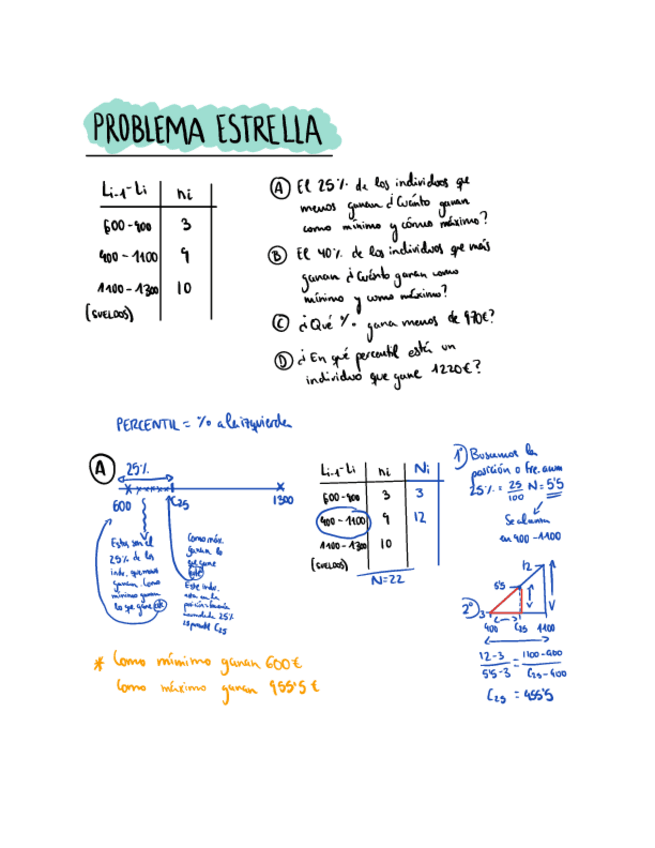 PROBLEMA ESTRELLA
Li-1-Li ni
600-900 3
900-1100 9
1100-1300 10
(SUELDOS)
A El 25% de los individuos que
menos ganan ¿Cuánto ganan
como mínimo y cómo máximo?
B El 40% de los individuos que más
ganan ¿Cuánto ganan como
mínimo y como máximo?
C ¿Qué % gana menos de 970€?
D ¿En qué percentil está un
individuo que gane 1220€?
PERCENTIL = % a la izquierda
A 25%
600 C25 1300
Estos son el
25% de los
indv. que menos
ganan. Como
mínimo ganan
lo que gane este
Como máx.
ganan lo
que gane
este
Este indv.
está en la
posición
acumulada 25%
C25
Li-1-Li ni Ni
600-900 3 3
900-1100 9 12
1100-1300 10
(SUELDOS)
N=22
1º Buscamos la
posición o fre. acum
25% = 25/100 N = 5'5
Se alcanza
en 900-1100
2º
12
5'5
3
900 C25 1100
12-3/5'5-3 = 1100-900/C25-900
C25 = 955'5
* Como mínimo ganan 600€
Como máximo ganan 955'5€